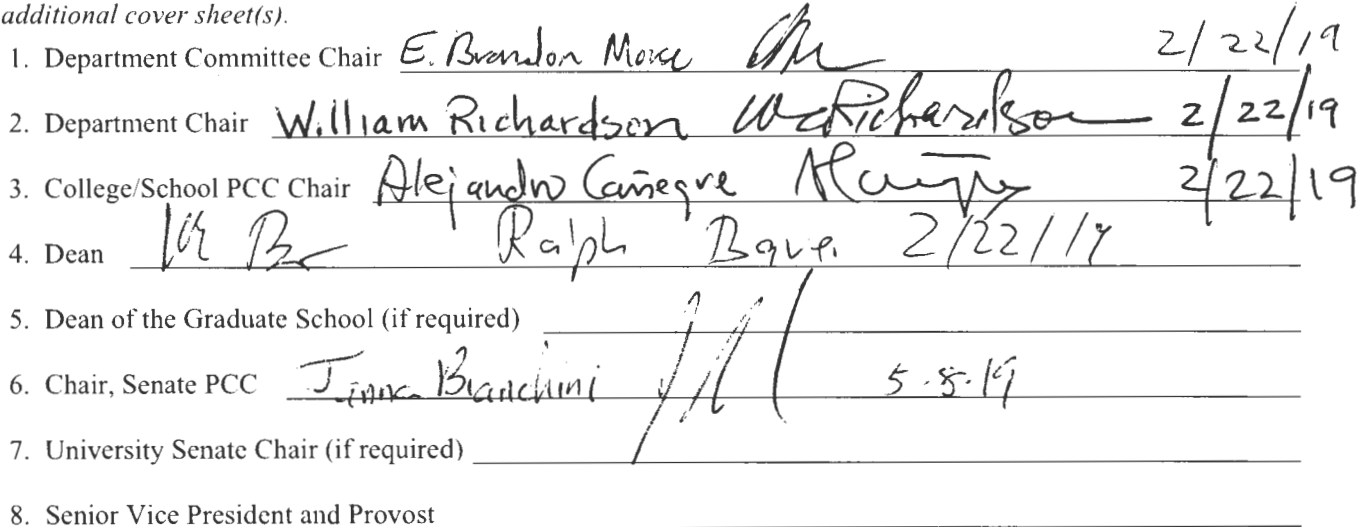 additional cover sheet(s).
1. Department Committee Chair E. Brandon Morse 2/22/19
2. Department Chair William Richardson WRichardson 2/22/19
3. College/School PCC Chair Alejandro Cañegre 2/22/19
4. Dean Ralph 2/22/19
5. Dean of the Graduate School (if required)
6. Chair, Senate PCC Bianchini 5.8.19
7. University Senate Chair (if required)
8. Senior Vice President and Provost